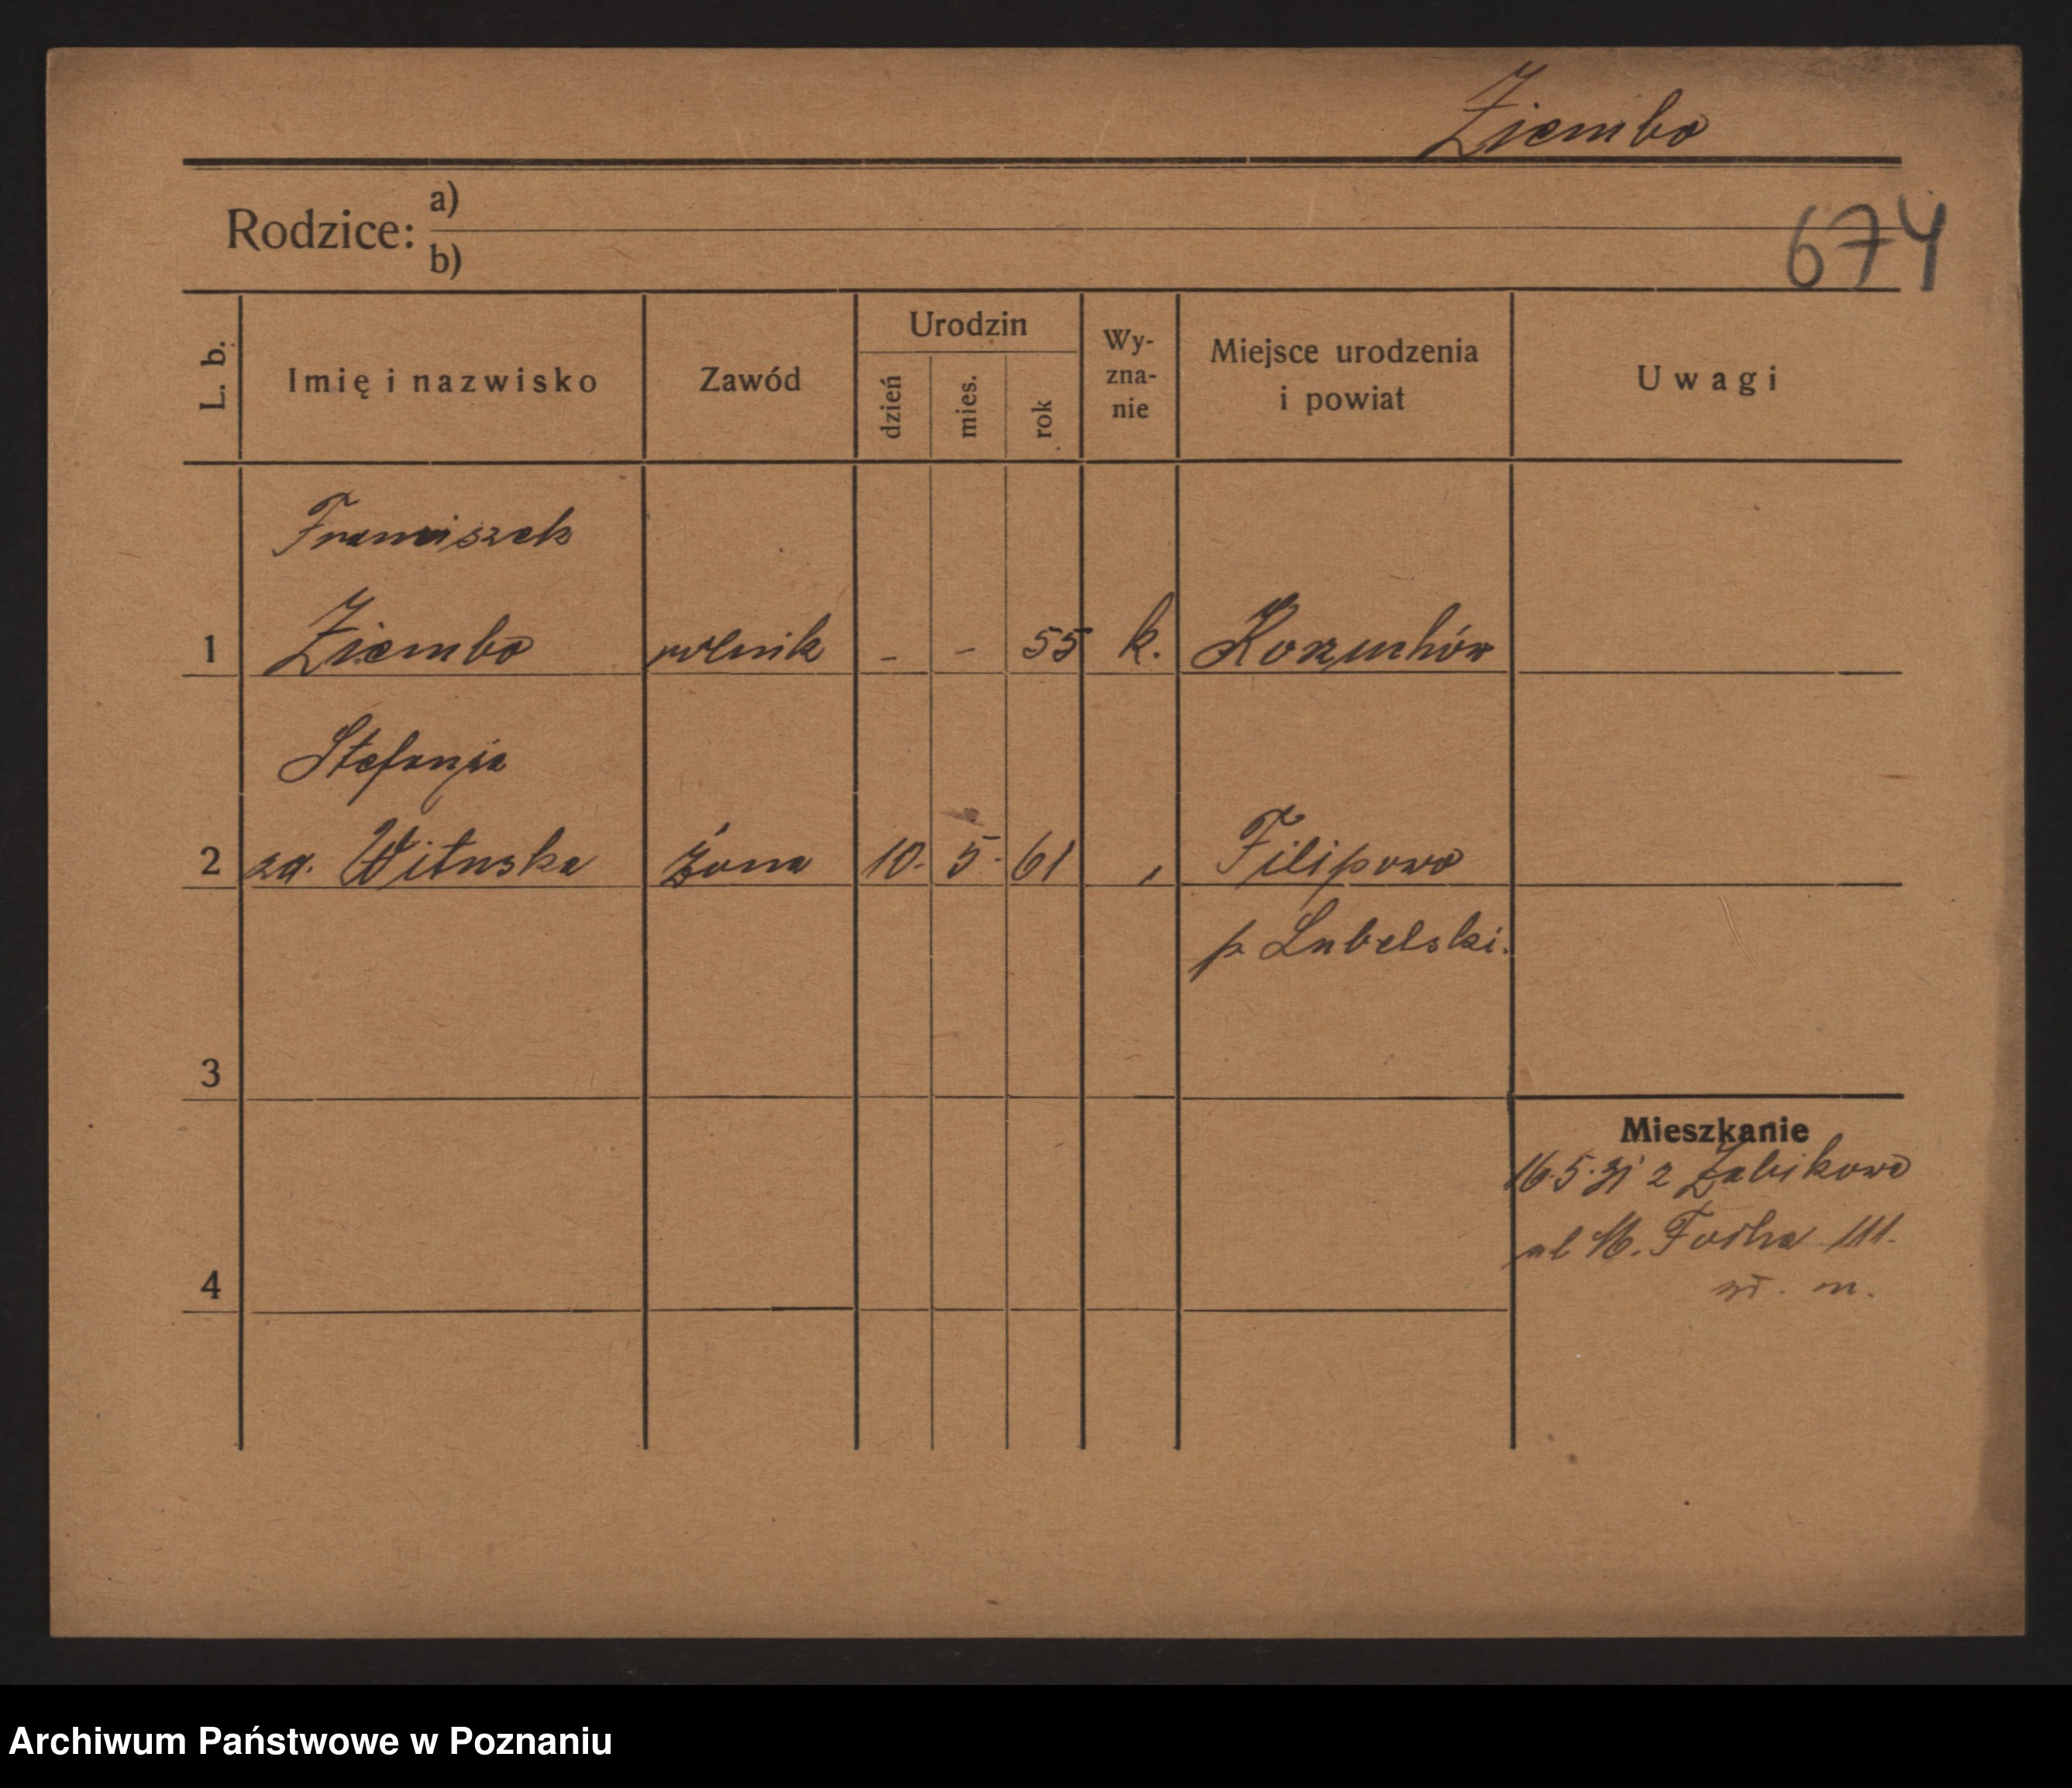 Ziembo
Rodzice: a)
b)
674
L. b.
Imię i nazwisko
Zawód
Urodzin
dzień
mies.
rok
Wy-
zna-
nie
Miejsce urodzenia
i powiat
Uwagi
Franciszek
1 Ziembo rolnik - - 55 k. Kozuchów
Stefanja
2 za. Wituska żona 10. 5. 61 " Filipowo
p. Lubelski.
3
Mieszkanie
16.5.31 z Żabikowo
ul M. Focha 111.
4
Archiwum Państwowe w Poznaniu